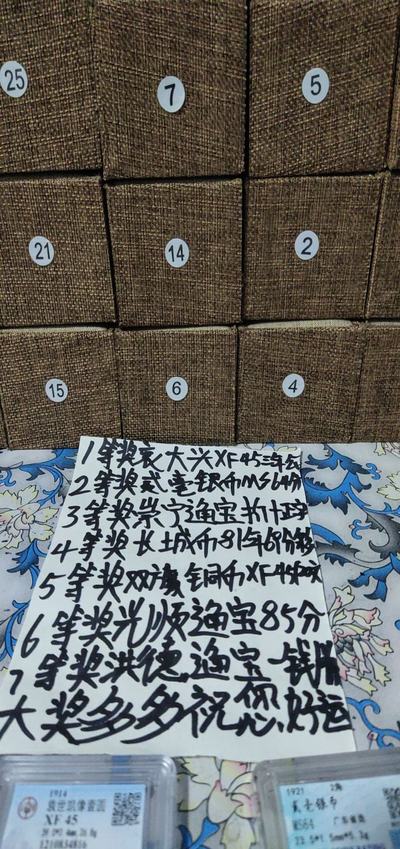 25
7
5
21
14
2
15
6
4
1等奖袁大头XF45三年
2等奖贰毫银币MS64分
3等奖崇宁通宝
4等奖长城币81年68分
5等奖双旗铜币XF45
6等奖光顺通宝85分
7等奖洪德通宝一钱
大奖多多祝您好运
1914
袁世凯像壹圆
XF 45
1210834816
1921
贰毫银币
MS64
广东省造
23.5*1.5mm*5.3g